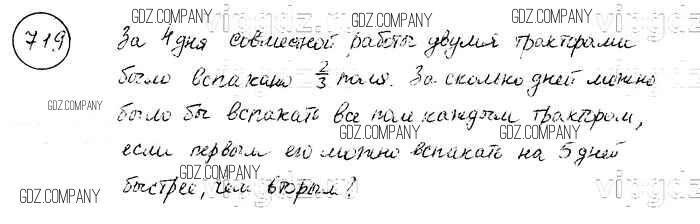 719
За 4 дня совместной работы двумя тракторами
было вспахано 2/3 поля. За сколько дней можно
было бы вспахать все поле каждым трактором,
если первым его можно вспахать на 5 дней
быстрее, чем вторым?
GDZ.COMPANY
GDZ.COMPANY
GDZ.COMPANY
GDZ.COMPANY
GDZ.COMPANY
GDZ.COMPANY
GDZ.COMPANY
GDZ.COMPANY